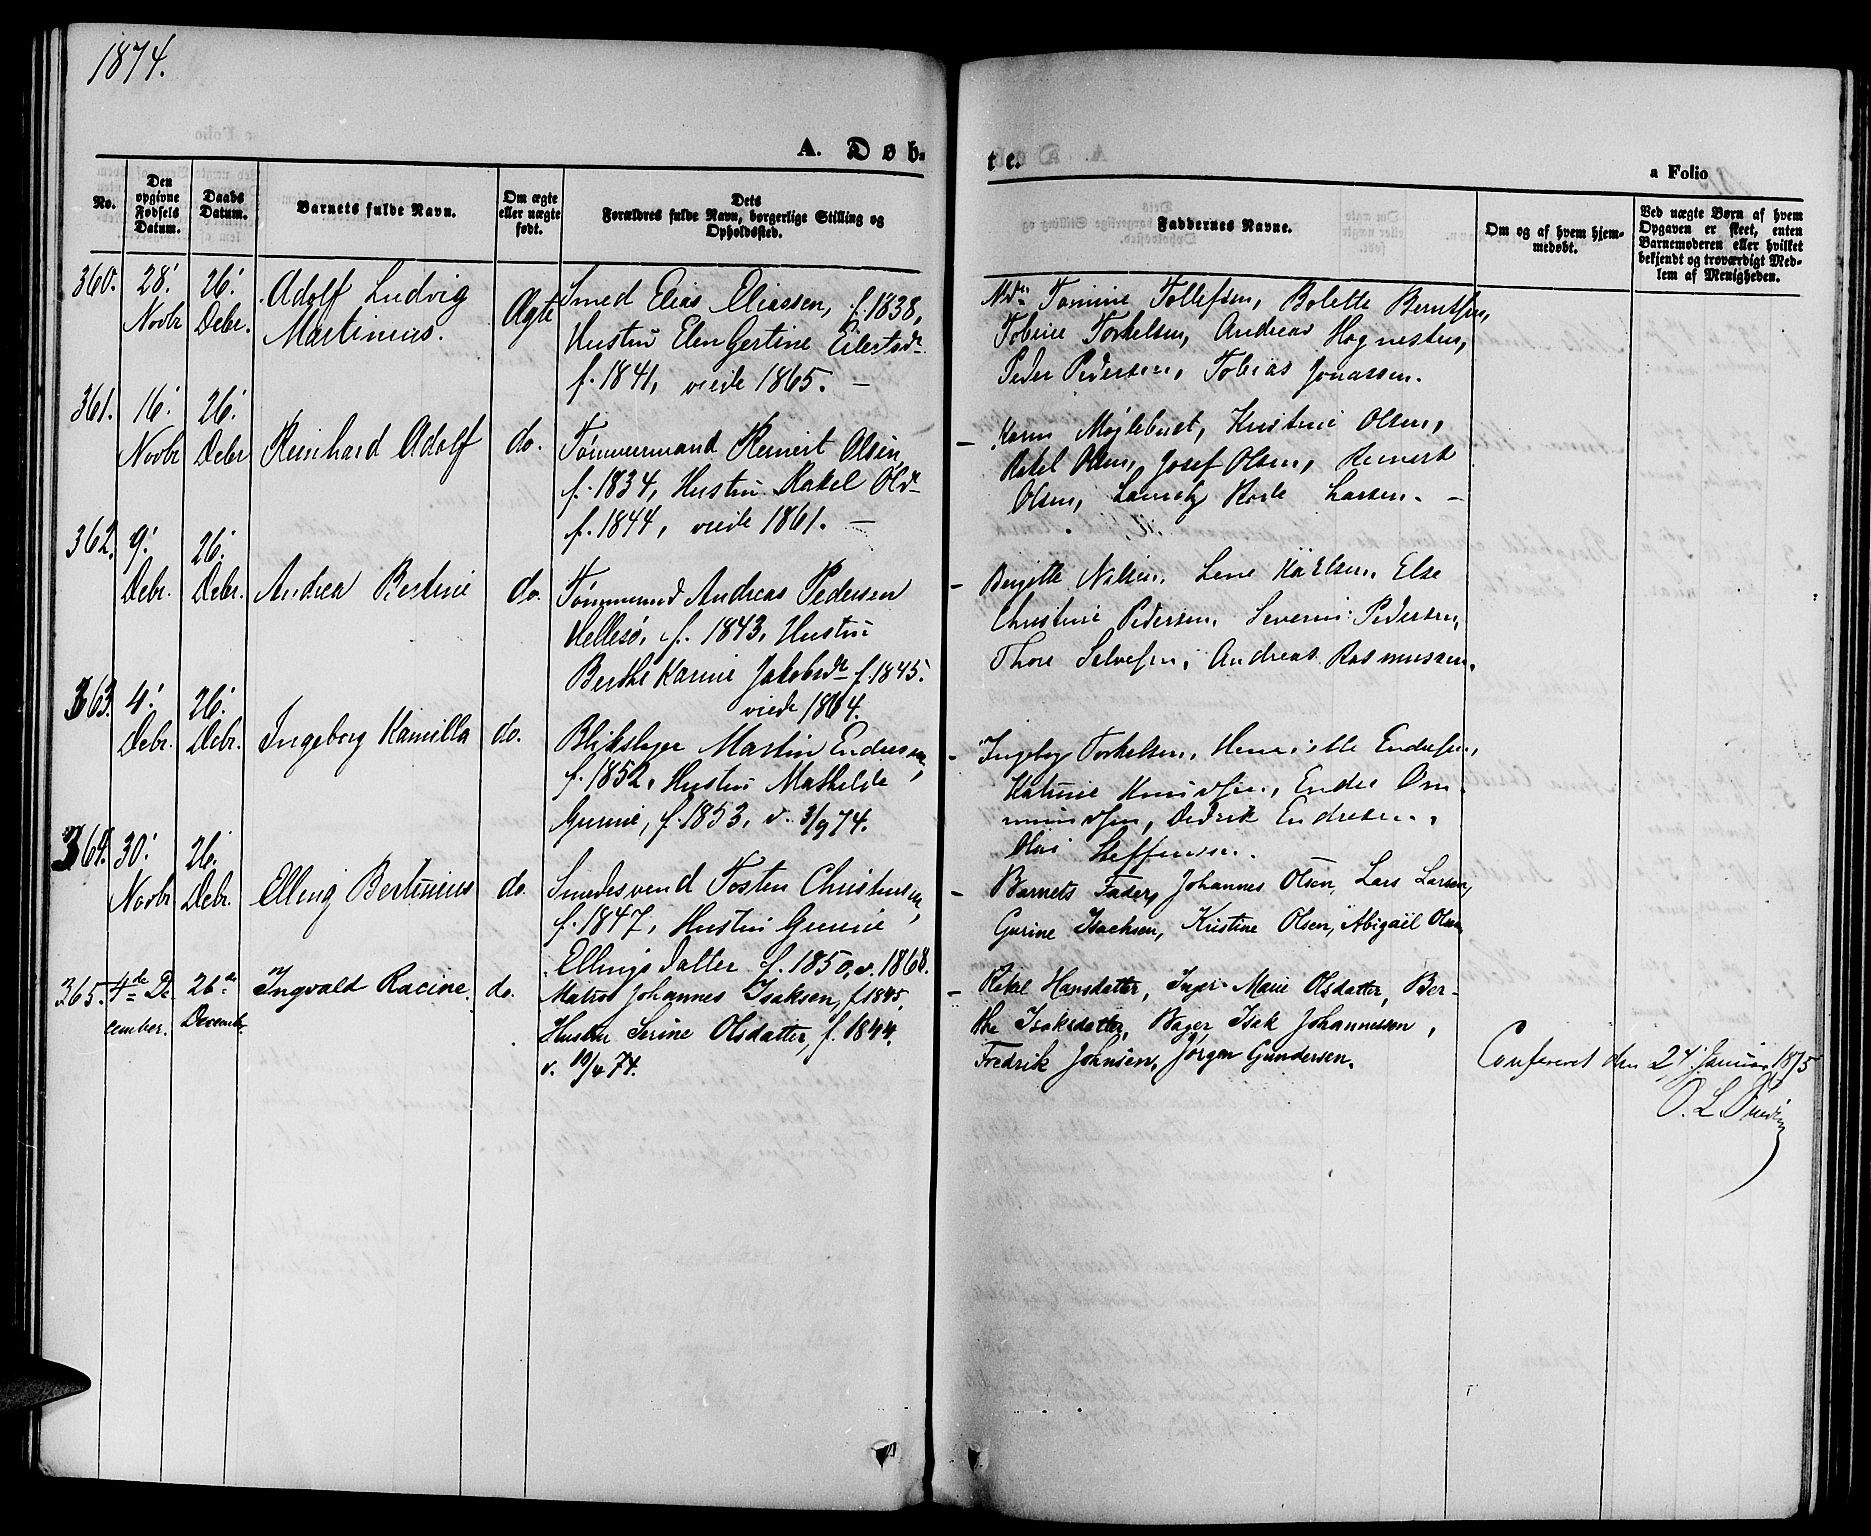 1874.
A. Døb-
te.
a Folio
No.
Den opgivne Fødsels Datum.
Daabs Datum.
Barnets fulde Navn.
Om ægte eller uægte født.
Dets Forældres fulde Navn, borgerlige Stilling og Opholdssted.
Faddernes Navne.
Om og af hvem hjemmedøbt.
Ved uægte Børn af hvem Opgaven er skeet, enten Barnemoderen eller hvilket bekjendt og troværdigt Medlem af Menigheden.
360. 28. Novbr 26. Debr. Adolf Ludvig Martinius. Ægte
Smed Elias Eliassen, f. 1838,
Hustru Elen Gertine Eilertsdr
f. 1841, viede 1865. —
Tomine Tollefsen, Bolette Berntsen,
Tobine Torkelsen, Andreas Hognesten,
Peder Pedersen, Tobias Jonassen.
361. 16. Novbr 26. Debr Reinhard Adolf do.
Tømmermand Reinert Olsen,
f. 1834, Hustru Rakel Olsdr
f. 1844, viede 1861. —
– Karen Møjlebust, Kristine Olsen,
Rakel Olsen, Josef Olsen, Reinert
Olsen, Lauritz Bode Larsen. –
362. 9. Debr. 26. Debr. Andrea Bertine do.
Tømmermd Andreas Pedersen
Hellesø, f. 1843, Hustru
Berthe Karine Jakobsdr f. 1845.
viede 1864.
– Birgitte Nilsen, Lene Karlsen, Else
Christine Pedersen, Severin Pedersen,
Thore Salvesen, Andreas Rasmussen.
363. 4. Debr. 26. Debr. Ingeborg Kamilla do.
Blikslager Martin Endresen,
f. 1852, Hustru Mathilde
Gurine, f. 1853, v. 3/9 74.
– Ingeborg Torkelsen, Henriette Endresen,
Katrine Knudsen, Endre Om-
mundsen, Didrik Endresen,
Olai Steffensen.
364. 30. Novbr 26. Debr. Elling Bertinius do.
Smedesvend Tosten Christensen,
f. 1847, Hustru Gurine
Ellingsdatter f. 1850, v. 1868.
– Barnets Fader, Johannes Olsen, Lars Larsen,
Gurine Isachsen, Kristine Olsen, Abigaël Olsen
365. 4de December. 26de December Ingvald Racine. do.
Matros Johannes Isaksen, f. 1845,
Hustru Serine Olsdatter, f. 1844.
v. 19/4 74.
– Rakel Hansdatter, Inger Marie Olsdatter, Ber-
the Isaksdatter, Bager Isak Johannessen,
Fredrik Johnsen, Jörgen Gundersen.
Confereret den 24 Januar 1875